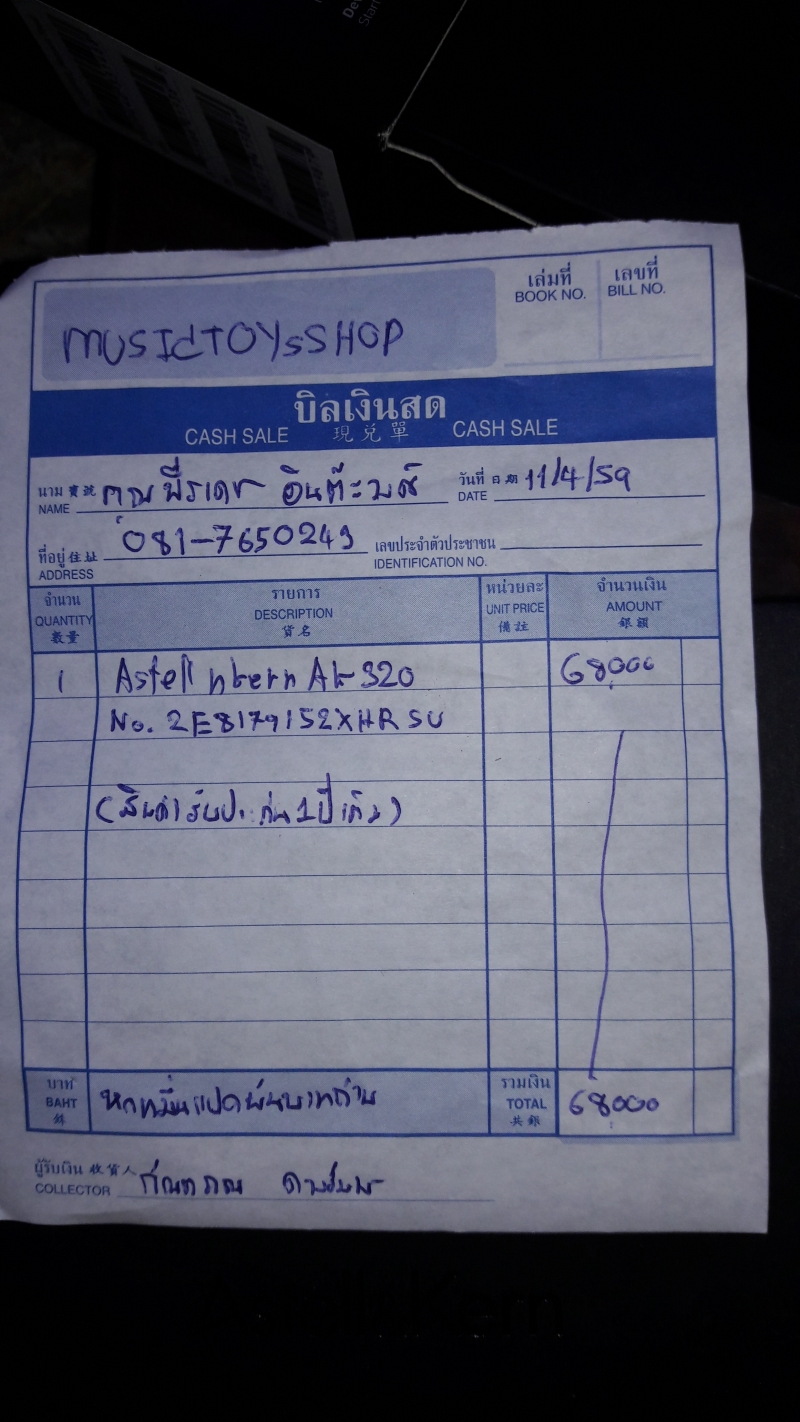 เล่มที่ เลขที่
BOOK NO. BILL NO.
MUSIcTOYsSHOP
บิลเงินสด
CASH SALE 現兌單 CASH SALE
นาม 寶號 คุณพีรเดช อินต๊ะวงศ์ วันที่ 日期 11/4/59
NAME DATE
ที่อยู่ 住址 081-7650249 เลขประจำตัวประชาชน
ADDRESS IDENTIFICATION NO.
จำนวน รายการ หน่วยละ จำนวนเงิน
QUANTITY DESCRIPTION UNIT PRICE AMOUNT
數量 貨名 備註 銀額
1 Astell nkern AK 320 68,000
No. 2E8179152XHRSU
(สินค้ารับประกัน 1 ปีเต็ม)
บาท หกหมื่นแปดพันบาทถ้วน รวมเงิน
BAHT TOTAL 68000
銖 共銀
ผู้รับเงิน 收貨人
COLLECTOR